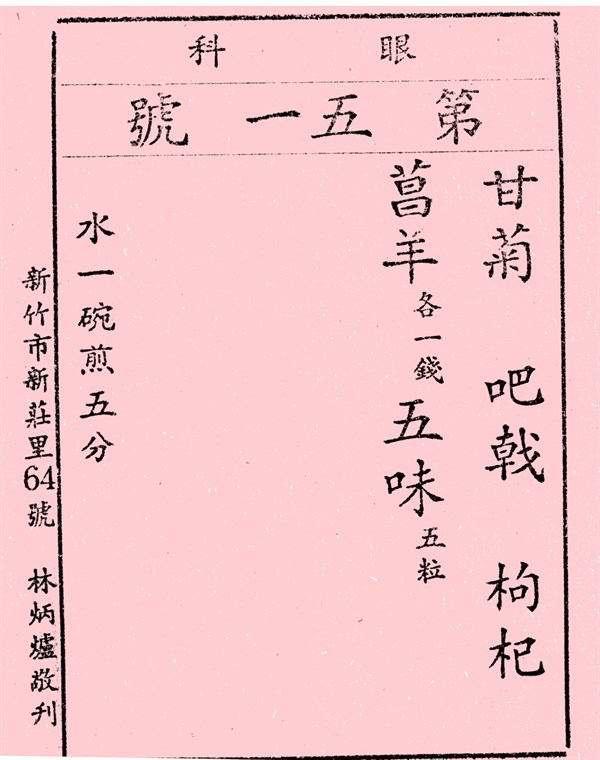 眼科
第五一號
甘菊 吧戟 枸杞
菖羊各一錢五味五粒
水一碗煎五分
新竹市新莊里64號 林炳爐敬刋